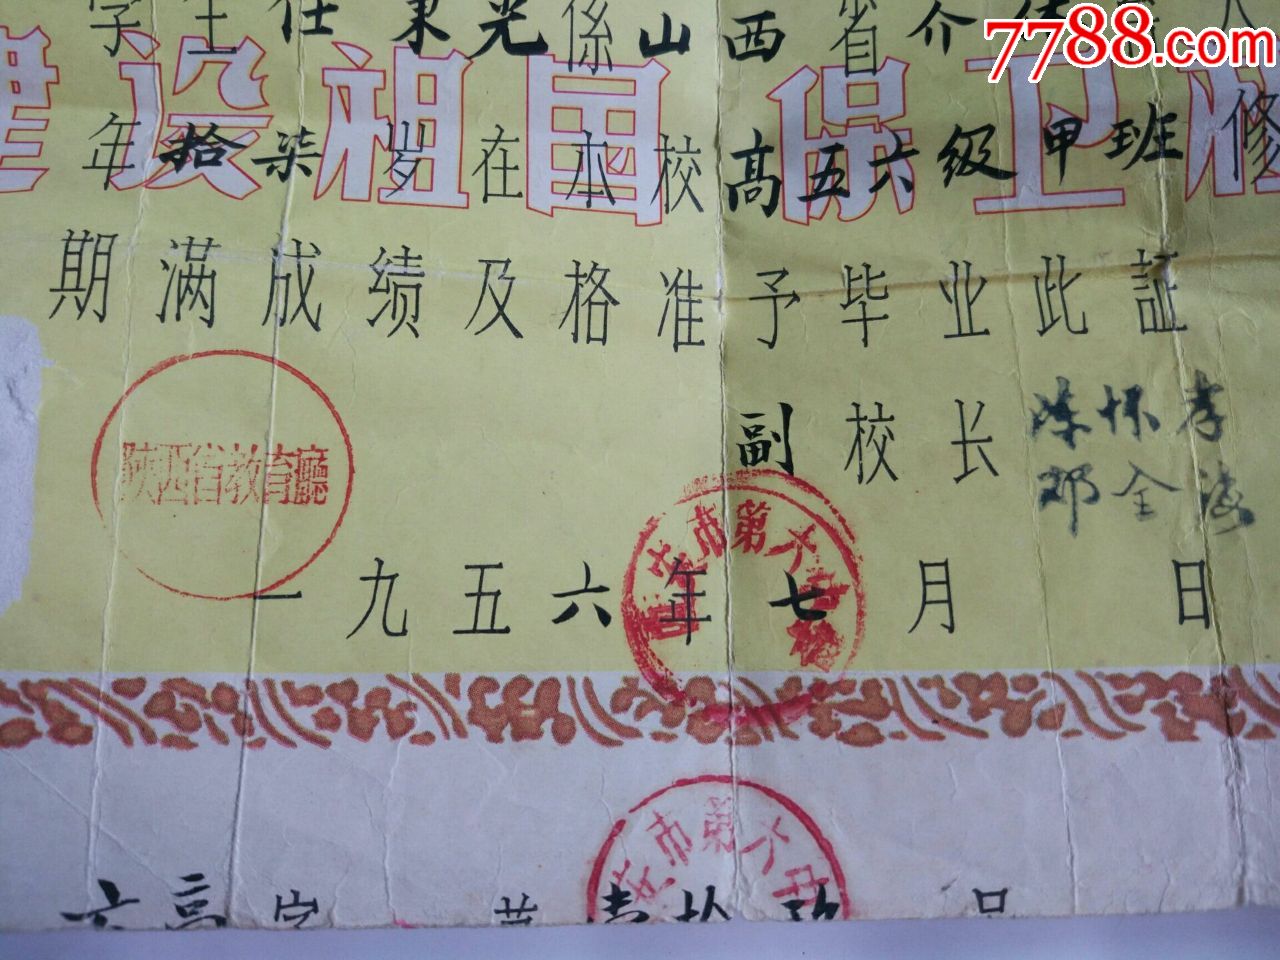 学生任秉光係山西省介休
7788.com
建设祖国保卫祖
年拾柒岁在本校高五六级甲班修
期满成绩及格准予毕业此証
陕西省教育廳
副校长
陈怀孝
邓全
安市第六
一九五六年七月 日
安市第六中
六高字 第壹拾玖号